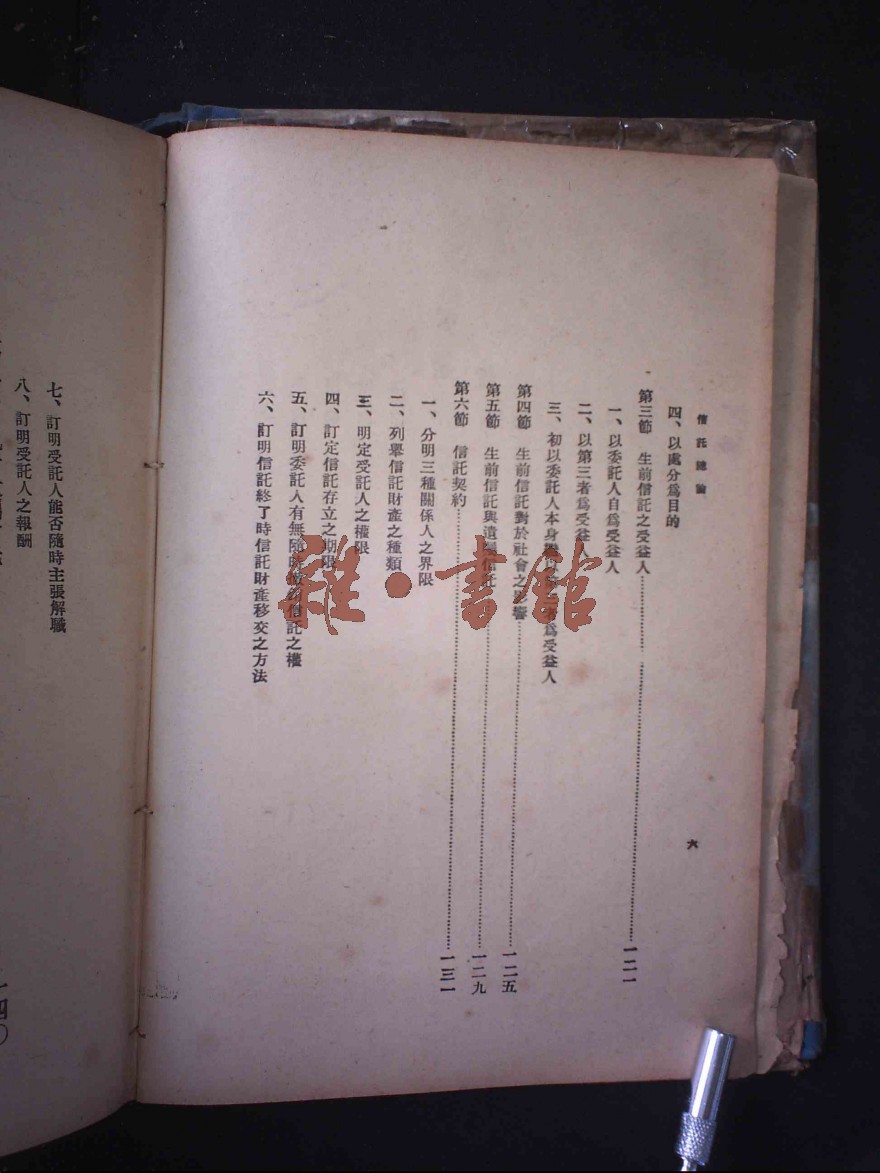 信託總論
六
四、以處分爲目的
第三節　生前信託之受益人……………………一二一
一、以委託人自爲受益人
二、以第三者爲受益人
三、初以委託人本身 爲受益人
第四節　生前信託對於社會之影響……………………一二五
第五節　生前信託與遺囑信託……………………一二九
第六節　信託契約……………………一三一
一、分明三種關係人之界限
二、列舉信託財產之種類
三、明定受託人之權限
四、訂定信託存立之期限
五、訂明委託人有無隨時 信託之權
六、訂明信託終了時信託財產移交之方法
七、訂明受託人能否隨時主張解職
八、訂明受託人之報酬
一四〇
雜·書館